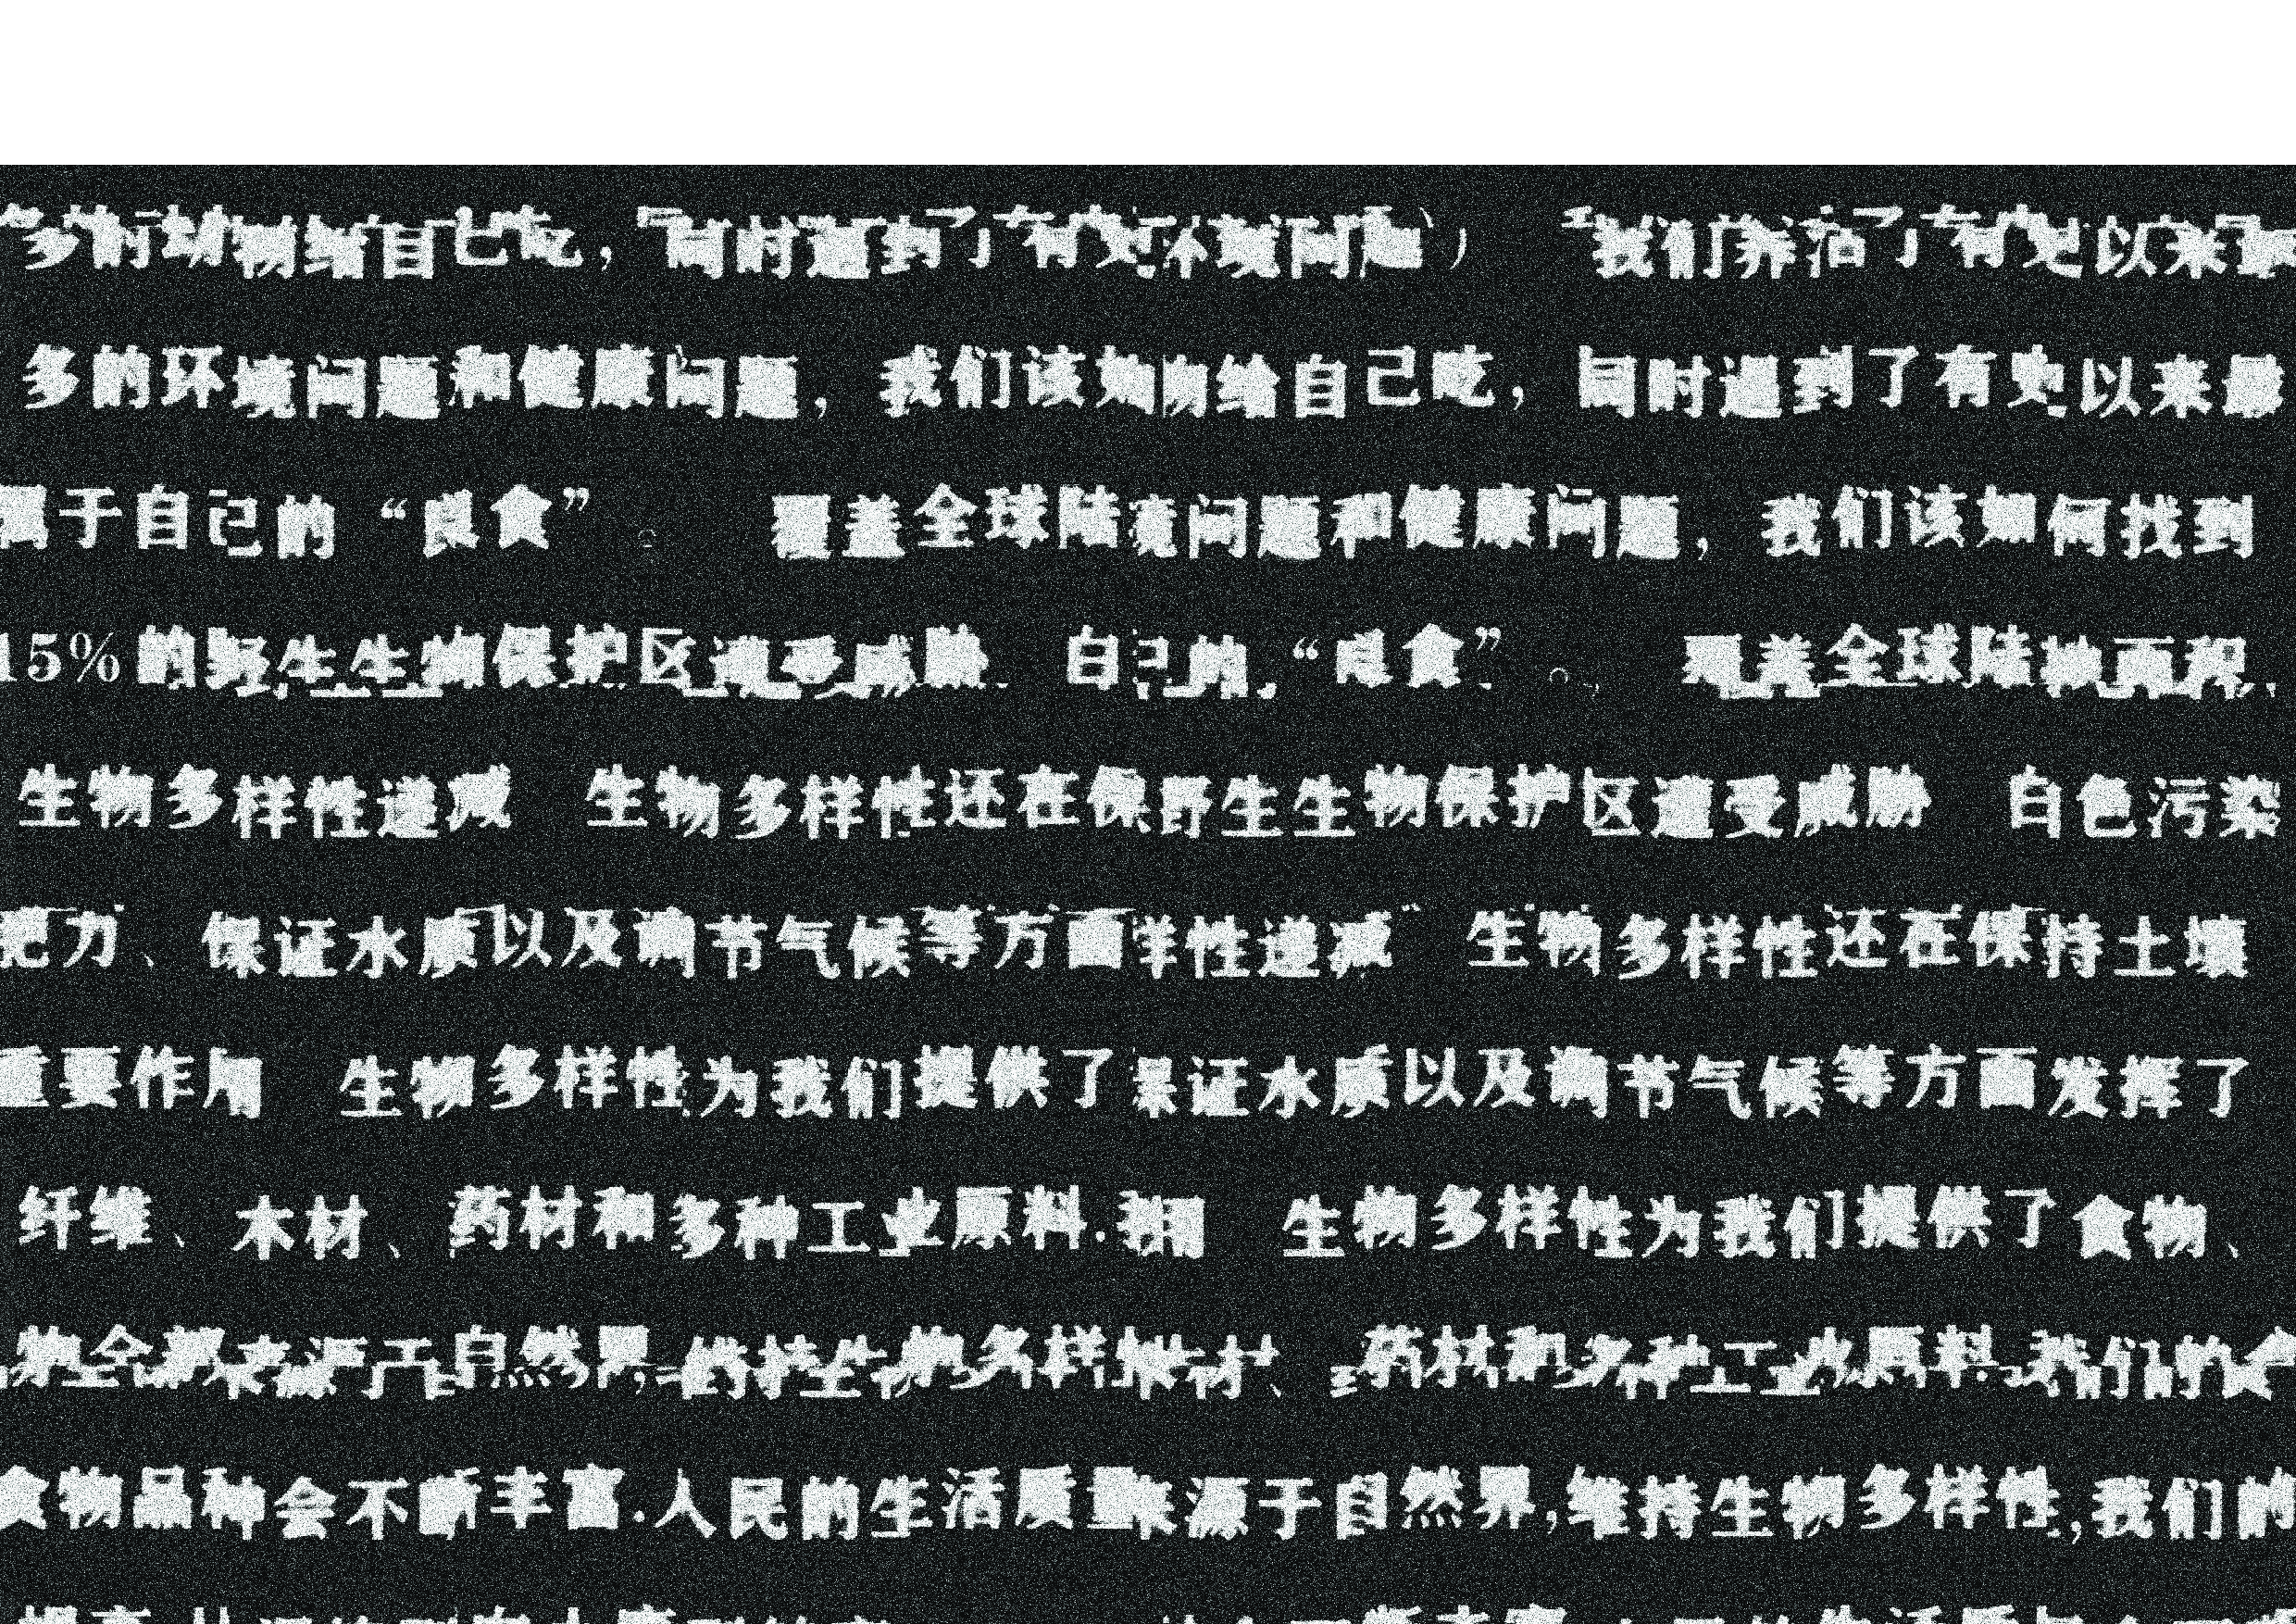 多的动物给自己吃，同时遇到了有史环境问题） 我们养活了有史以来最
多的环境问题和健康问题，我们该如物给自己吃，同时遇到了有史以来最
属于自己的“良食”。 覆盖全球陆境问题和健康问题，我们该如何找到
15%的野生生物保护区遭受威胁 自己的“良食”。 覆盖全球陆地面积
生物多样性递减 生物多样性还在保野生生物保护区遭受威胁 白色污染
肥力、保证水质以及调节气候等方面样性递减 生物多样性还在保持土壤
重要作用 生物多样性为我们提供了保证水质以及调节气候等方面发挥了
纤维、木材、药材和多种工业原料. 生物多样性为我们提供了食物、
物全部来源于自然界,维持生物多样性木材、药材和多种工业原料.我们的食
食物品种会不断丰富.人民的生活质量来源于自然界,维持生物多样性,我们的